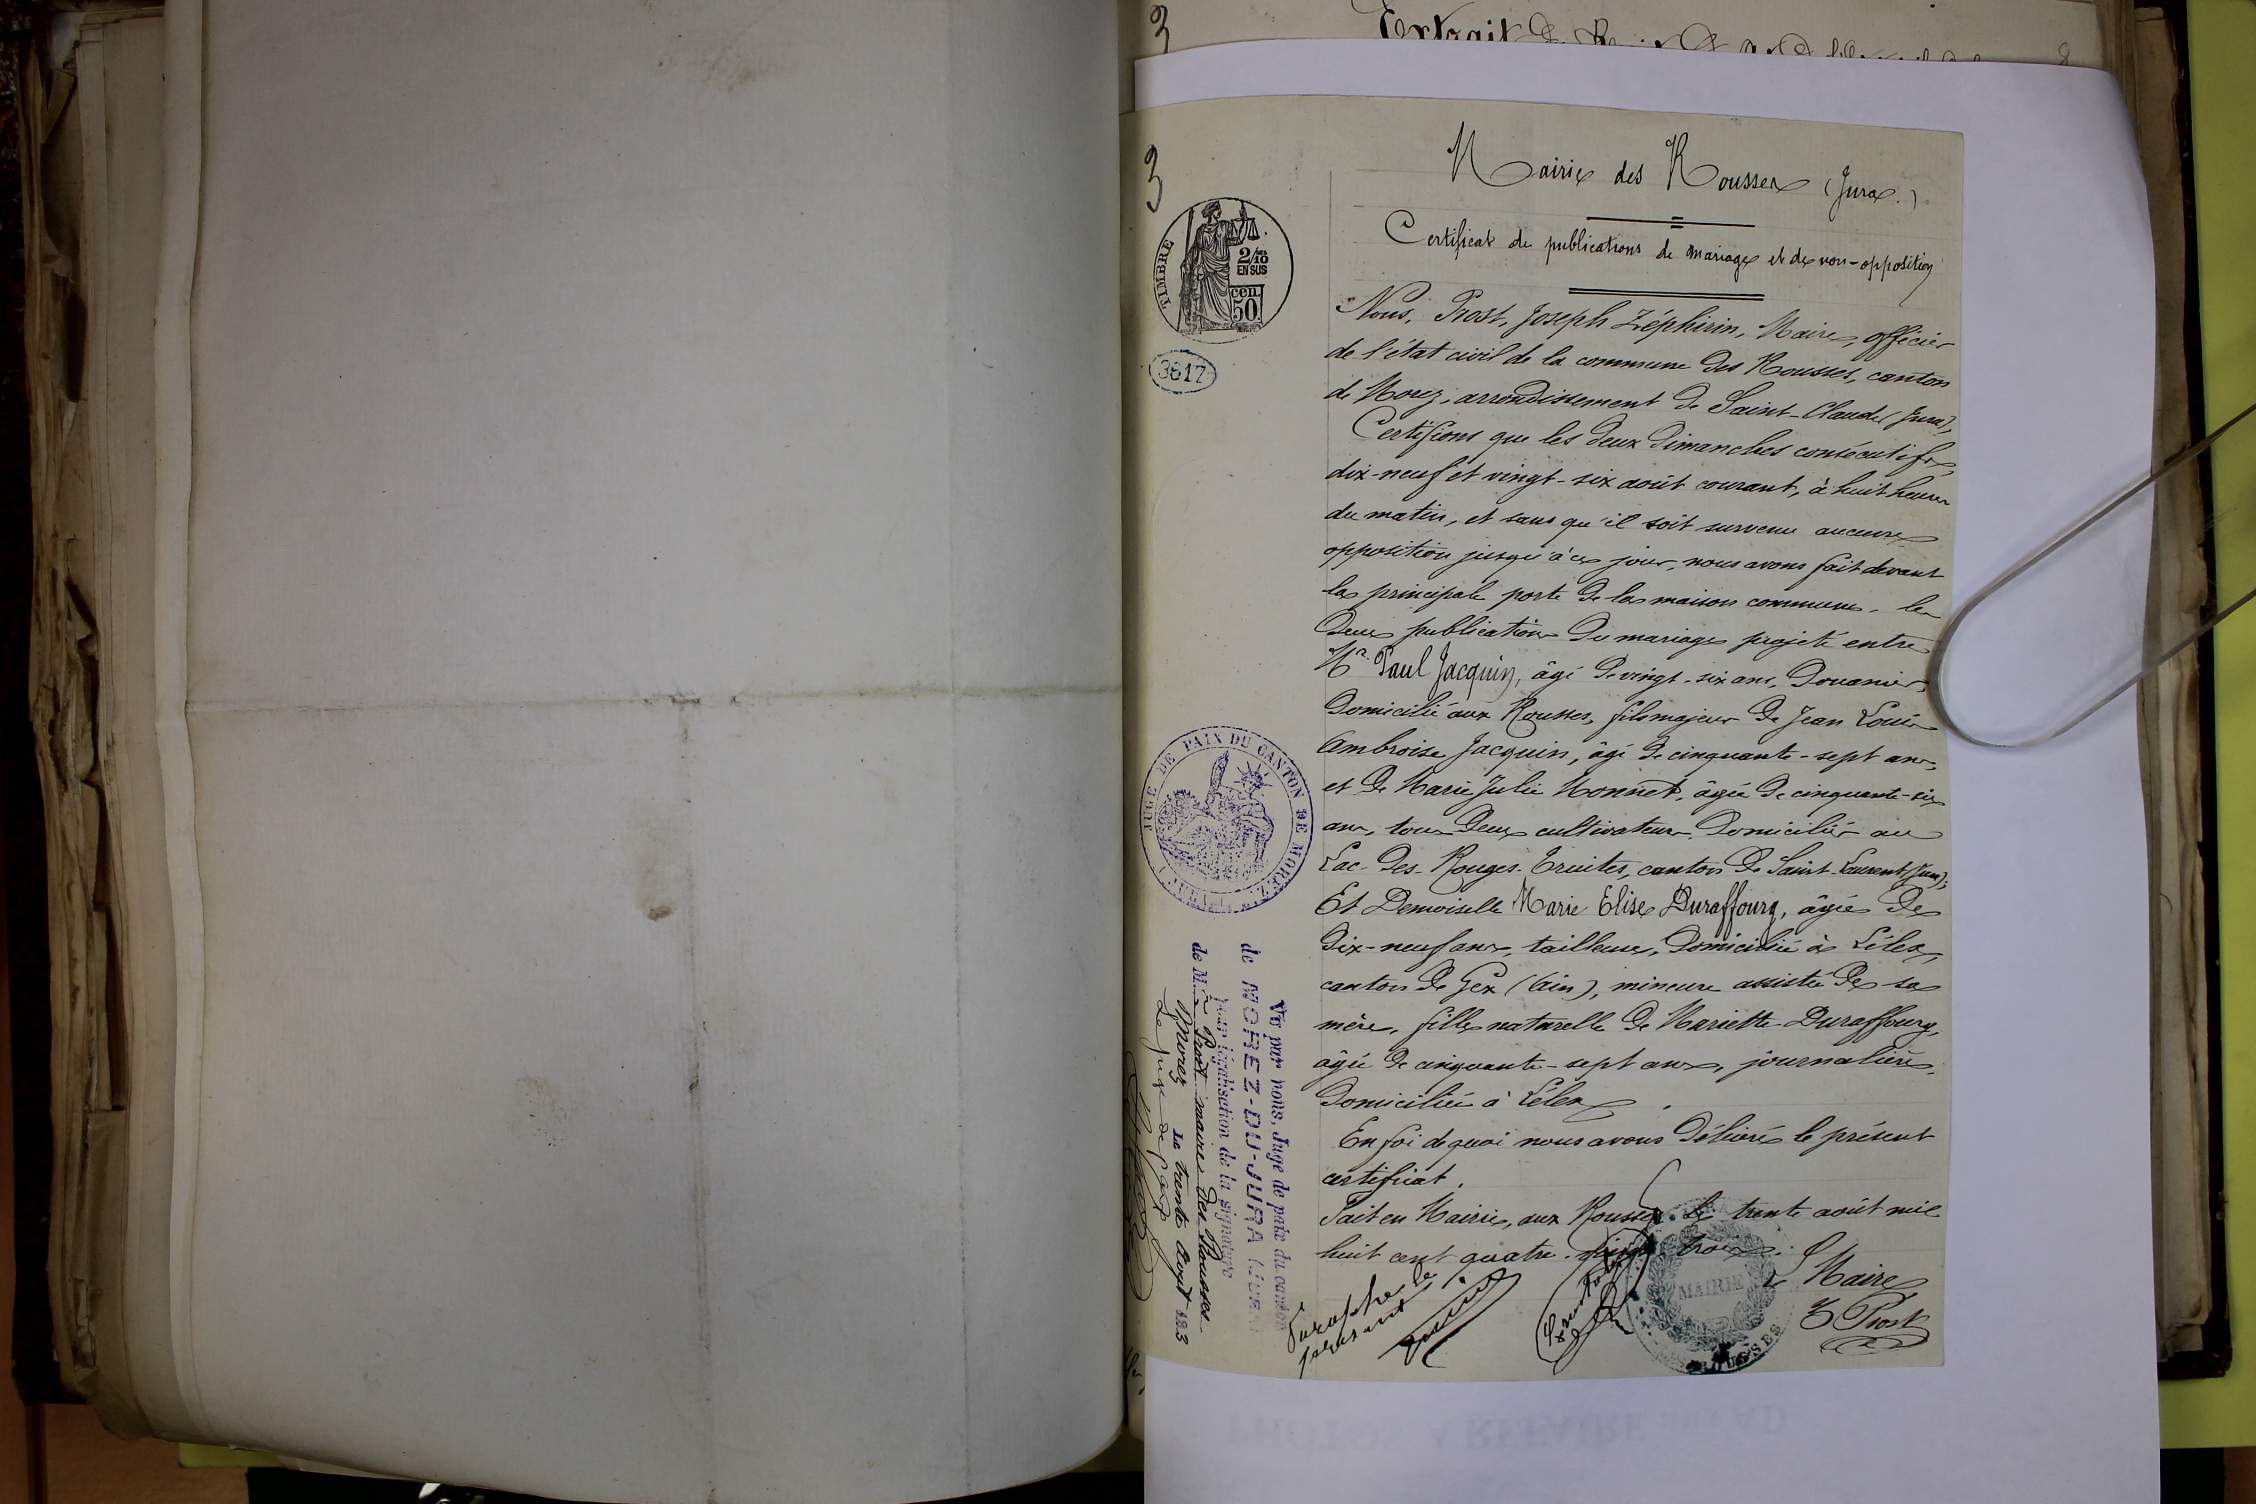 3
Extrait
3
Mairie des Rousses (Jura.)
Certificat de publications de mariage et de non-opposition
TIMBRE
2/10
EN SUS
cen.
50.
3617
Nous, Prost, Joseph Zéphirin, Maire, officier
de l'état civil de la commune des Rousses, canton
de Morez, arrondissement de Saint-Claude (Jura),
Certifions que les deux Dimanches consécutifs,
dix-neuf et vingt-six août courant, à huit heures
du matin, et sans qu'il soit survenu aucune
opposition jusqu'à ce jour, nous avons fait devant
la principale porte de la maison commune, les
deux publications du mariage projeté entre
Mr. Paul Jacquin, âgé de vingt-six ans, Douanier,
Domicilié aux Rousses, fils majeur de Jean Louis
Ambroise Jacquin, âgé de cinquante-sept ans,
et de Marie Julie Monnet, âgée de cinquante-six
ans, tous deux cultivateurs, Domiciliés au
Lac-des-Rouges-Truites, canton de Saint-Laurent (Jura);
Et Demoiselle Marie Elise Duraffourg, âgée de
dix-neuf ans, tailleuse, Domiciliée à Lélex,
canton de Gex (Ain), mineure assistée de sa
mère, fille naturelle de Mariette Duraffourg,
âgée de cinquante-sept ans, journalière,
Domiciliée à Lélex.
En foi de quoi nous avons délivré le présent
certificat.
Fait en Mairie, aux Rousses, le trente août mil
huit cent quatre-vingt trois.
Le Maire
Z Prost
MAIRIE
ROUSSES
JUGE DE PAIX DU CANTON DE MOREZ
Vu par nous, Juge de paix du canton
de MOREZ-DU-JURA (JURA)
pour légalisation de la signature
de M. Z Prost maire des Rousses
Morez Le trente Août 1883
Le juge de paix